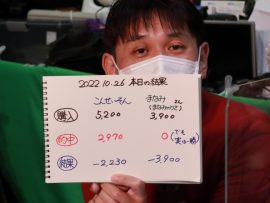 2022.10.26 本日の結果
こんせいそん まなみさん
(まなみりょうさ)
購入 5,200 3,900
的中 2,970 0 (でも実は一勝)
結果 -2,230 -3,900